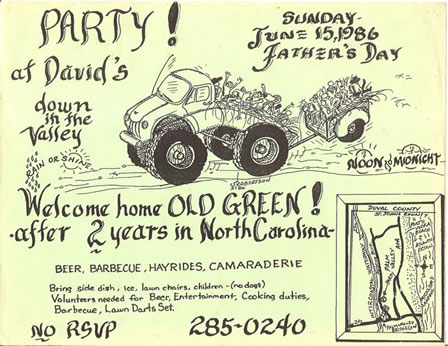 PARTY!
at David's
down
in the
Valley
RAIN OR SHINE
SUNDAY-
JUNE 15, 1986
FATHER'S DAY
NOON to MIDNIGHT
Welcome home OLD GREEN!
-after 2 years in North Carolina-
BEER, BARBECUE, HAYRIDES, CAMARADERIE
Bring side dish, ice, lawn chairs, children - (no dogs)
Volunteers needed for Beer, Entertainment, Cooking duties,
Barbecue, Lawn Darts Set.
NO RSVP
285-0240
DUVAL COUNTY
ST. JOHNS COUNTY
PALM
VALLEY